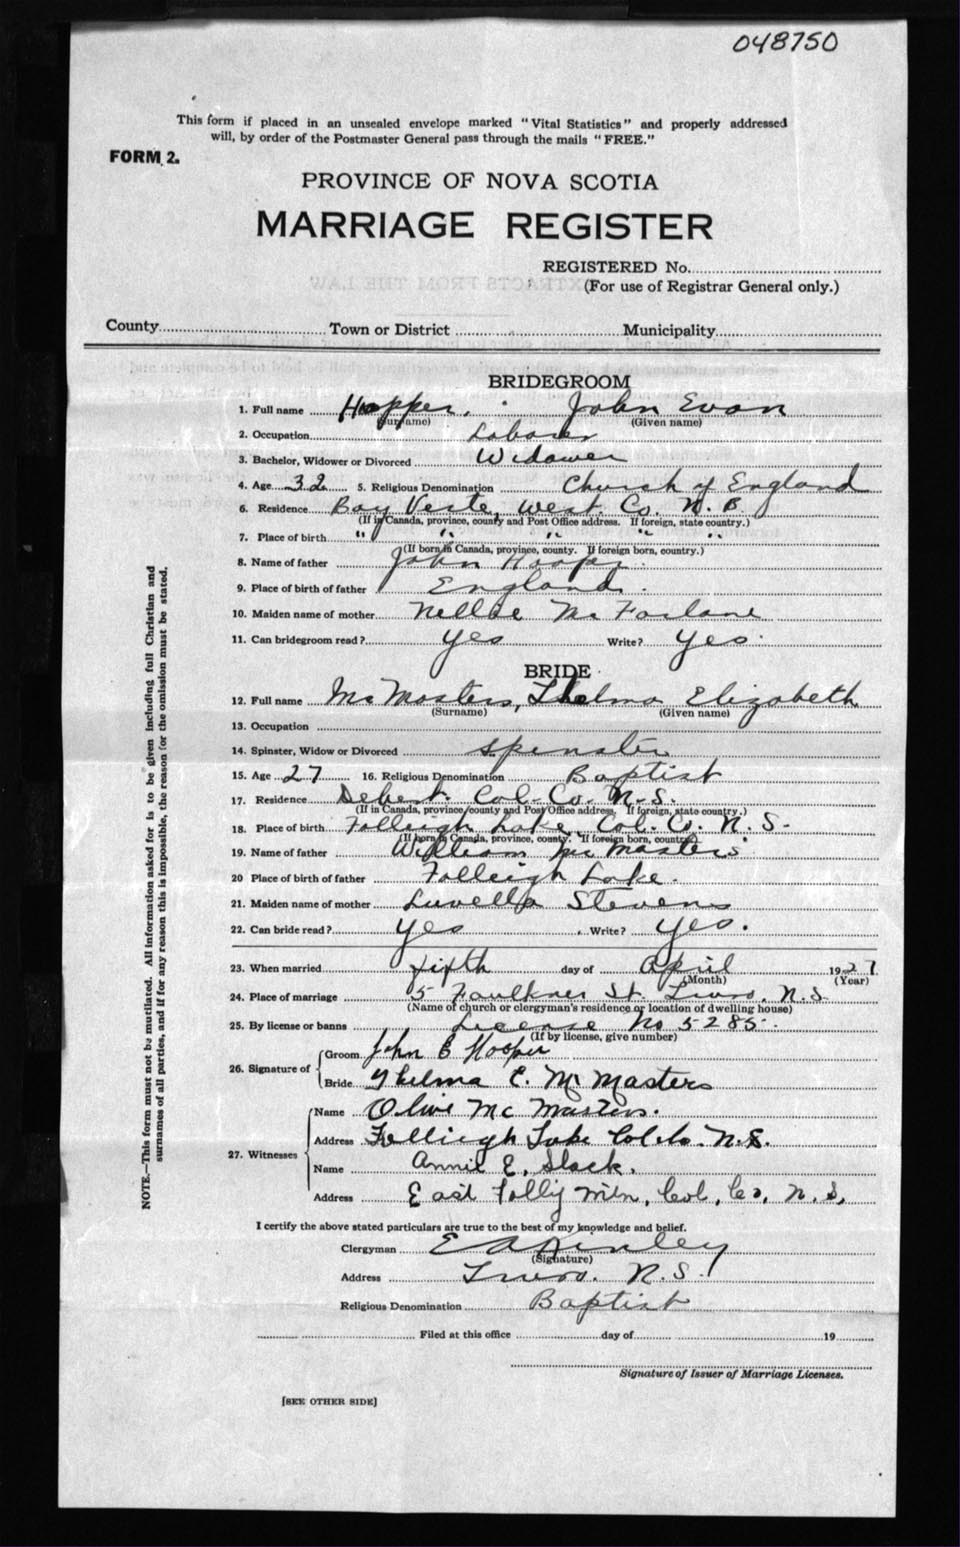 048750
This form if placed in an unsealed envelope marked "Vital Statistics" and properly addressed
will, by order of the Postmaster General pass through the mails "FREE."
FORM 2.
PROVINCE OF NOVA SCOTIA
MARRIAGE REGISTER
REGISTERED No.
(For use of Registrar General only.)
County Town or District Municipality
BRIDEGROOM
1. Full name Hopper, John Evan
(Surname) (Given name)
2. Occupation Laborer
3. Bachelor, Widower or Divorced Widower
4. Age 32 5. Religious Denomination Church of England
6. Residence Bay Verte, West. Co. N. B.
(If in Canada, province, county and Post Office address. If foreign, state country.)
7. Place of birth " " " " "
(If born in Canada, province, county. If foreign born, country.)
8. Name of father John Hooper
9. Place of birth of father England.
10. Maiden name of mother Nellie McFarlane
11. Can bridegroom read? yes Write? yes.
BRIDE
12. Full name McMasters, Thelma Elizabeth
(Surname) (Given name)
13. Occupation
14. Spinster, Widow or Divorced Spinster
15. Age 27 16. Religious Denomination Baptist
17. Residence Debert. Col. Co. N.S.
(If in Canada, province, county and Post Office address. If foreign, state country.)
18. Place of birth Folleigh Lake, Col. Co. N. S.
(If born in Canada, province, county. If foreign born, country.)
19. Name of father William McMasters
20 Place of birth of father Folleigh Lake.
21. Maiden name of mother Luvella Stevens
22. Can bride read? yes Write? yes.
23. When married day of April 1927
(Month) (Year)
24. Place of marriage 5 Faulkner St. Truro. N.S.
(Name of church or clergyman's residence or location of dwelling house)
25. By license or banns License No 5285.
(If by license, give number)
26. Signature of Groom John E Hooper
Bride Thelma E. McMasters
27. Witnesses Name Olive McMasters.
Address Folleigh Lake Col. Co. N.S.
Name Annie E. Slack.
Address East Folly Mtn, Col, Co, N. S,
I certify the above stated particulars are true to the best of my knowledge and belief.
Clergyman
(Signature)
Address Truro. N.S.
Religious Denomination Baptist
Filed at this office day of 19
Signature of Issuer of Marriage Licenses.
[SEE OTHER SIDE]
NOTE.—This form must not be mutilated. All information asked for is to be given including full Christian and
surnames of all parties, and if for any reason this is impossible, the reason for the omission must be stated.